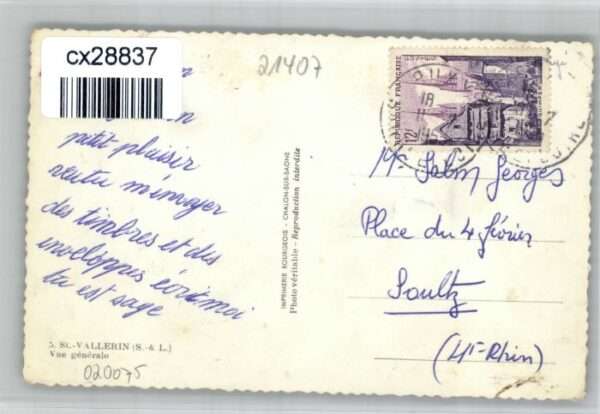 cx28837
21407
petit plaisir
veutu m'envoyer
des timbres et des
enveloppes écris moi
tu est sage
5. St.-VALLERIN (S.-& L.)
Vue générale
020075
IMPRIMERIE BOURGEOIS - CHALON-SUR-SAONE
Photo véritable - Reproduction interdite
REPUBLIQUE FRANÇAISE
12F
18
Mr Salm Georges
Place du 4 février
Soultz
(Ht-Rhin)